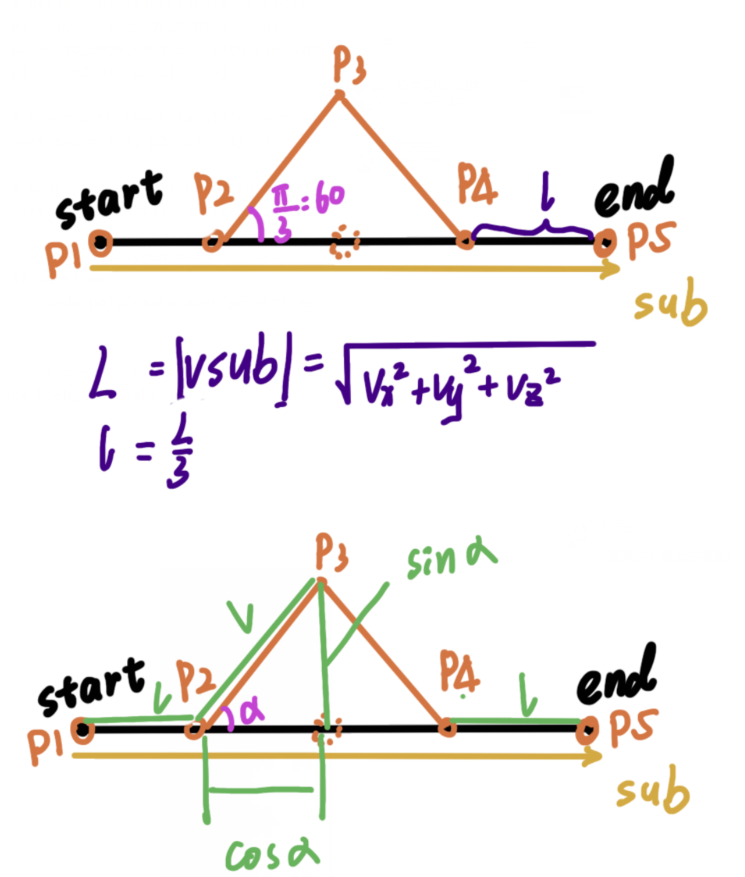 P3
start P2 π/3=60 P4 l end
P1 P5
sub
L = |vsub| = √vx²+vy²+vz²
l = L/3
P3 sinα
v
start l P2 α P4 l end
P1 P5
sub
cosα